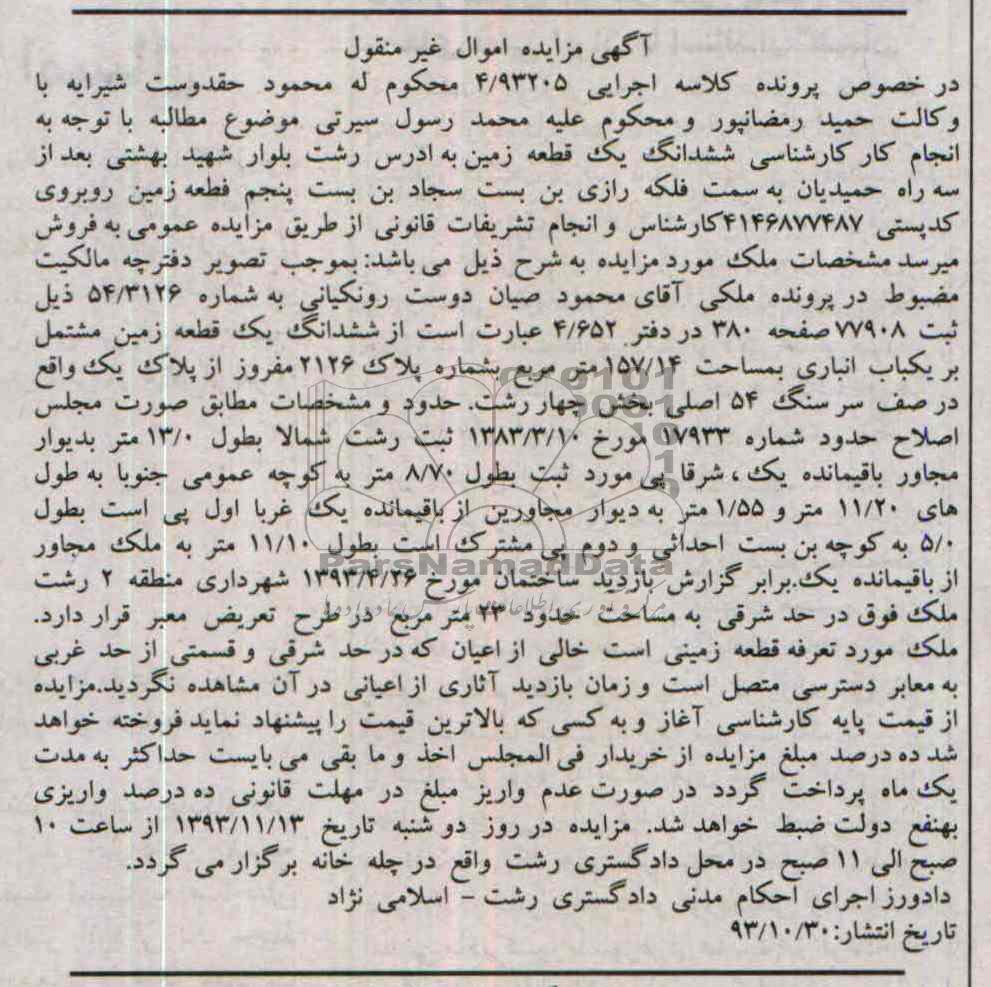 آگهی مزایده اموال غیر منقول
در خصوص پرونده کلاسه اجرایی ۴/۹۳۲۰۵ محکوم له محمود حقدوست شیرایه با
وکالت حمید رمضانپور و محکوم علیه محمد رسول سیرتی موضوع مطالبه با توجه به
انجام کار کارشناسی ششدانگ یک قطعه زمین به ادرس رشت بلوار شهید بهشتی بعد از
سه راه حمیدیان به سمت فلکه رازی بن بست سجاد بن بست پنجم قطعه زمین روبروی
کدپستی ۴۱۴۶۸۷۷۴۸۷کارشناس و انجام تشریفات قانونی از طریق مزایده عمومی به فروش
میرسد مشخصات ملک مورد مزایده به شرح ذیل می باشد: بموجب تصویر دفترچه مالکیت
مضبوط در پرونده ملکی آقای محمود صیان دوست رونکیانی به شماره ۵۴/۳۱۲۶ ذیل
ثبت ۷۷۹۰۸ صفحه ۳۸۰ در دفتر ۴/۶۵۲ عبارت است از ششدانگ یک قطعه زمین مشتمل
بر یکباب انباری بمساحت ۱۵۷/۱۴ متر مربع بشماره پلاک ۲۱۲۶ مفروز از پلاک یک واقع
در صف سر سنگ ۵۴ اصلی بخش چهار رشت. حدود و مشخصات مطابق صورت مجلس
اصلاح حدود شماره ۱۷۹۳۳ مورخ ۱۳۸۳/۳/۱۰ ثبت رشت شمالا بطول ۱۳/۰ متر بدیوار
مجاور باقیمانده یک ، شرقا پی مورد ثبت بطول ۸/۷۰ متر به کوچه عمومی جنوبا به طول
های ۱۱/۲۰ متر و ۱/۵۵ متر به دیوار مجاورین از باقیمانده یک غربا اول پی است بطول
۵/۰ به کوچه بن بست احداثی و دوم پی مشترک است بطول ۱۱/۱۰ متر به ملک مجاور
از باقیمانده یک.برابر گزارش بازدید ساختمان مورخ ۱۳۹۳/۴/۲۶ شهرداری منطقه ۲ رشت
ملک فوق در حد شرقی به مساحت حدود ۲۳ متر مربع در طرح تعریض معبر قرار دارد.
ملک مورد تعرفه قطعه زمینی است خالی از اعیان که در حد شرقی و قسمتی از حد غربی
به معابر دسترسی متصل است و زمان بازدید آثاری از اعیانی در آن مشاهده نگردید.مزایده
از قیمت پایه کارشناسی آغاز و به کسی که بالاترین قیمت را پیشنهاد نماید فروخته خواهد
شد ده درصد مبلغ مزایده از خریدار فی المجلس اخذ و ما بقی می بایست حداکثر به مدت
یک ماه پرداخت گردد در صورت عدم واریز مبلغ در مهلت قانونی ده درصد واریزی
بهنفع دولت ضبط خواهد شد. مزایده در روز دو شنبه تاریخ ۱۳۹۳/۱۱/۱۳ از ساعت ۱۰
صبح الی ۱۱ صبح در محل دادگستری رشت واقع در چله خانه برگزار می گردد.
دادورز اجرای احکام مدنی دادگستری رشت - اسلامی نژاد
تاریخ انتشار:۹۳/۱۰/۳۰
ParsNamadData